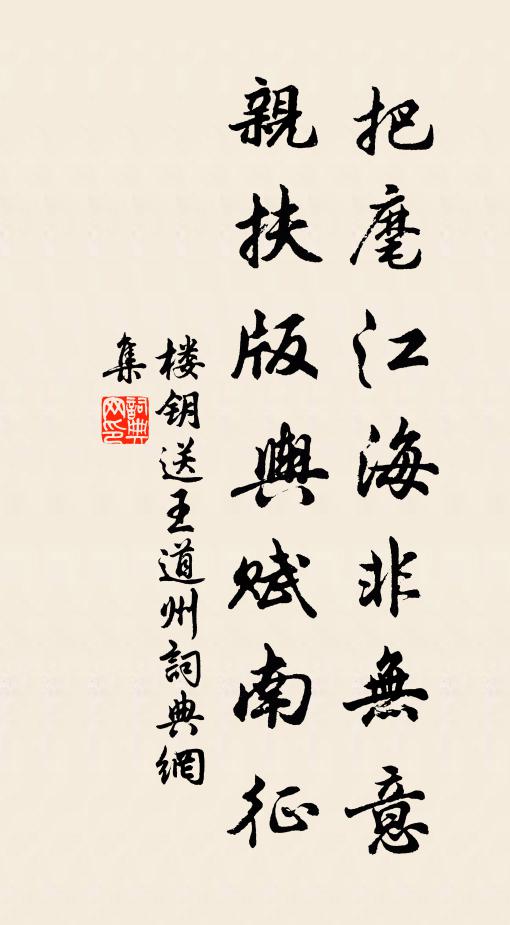 把麾江海非無意
親扶版輿賦南征
楼钥送王道州詞典網
集
詞典
网印